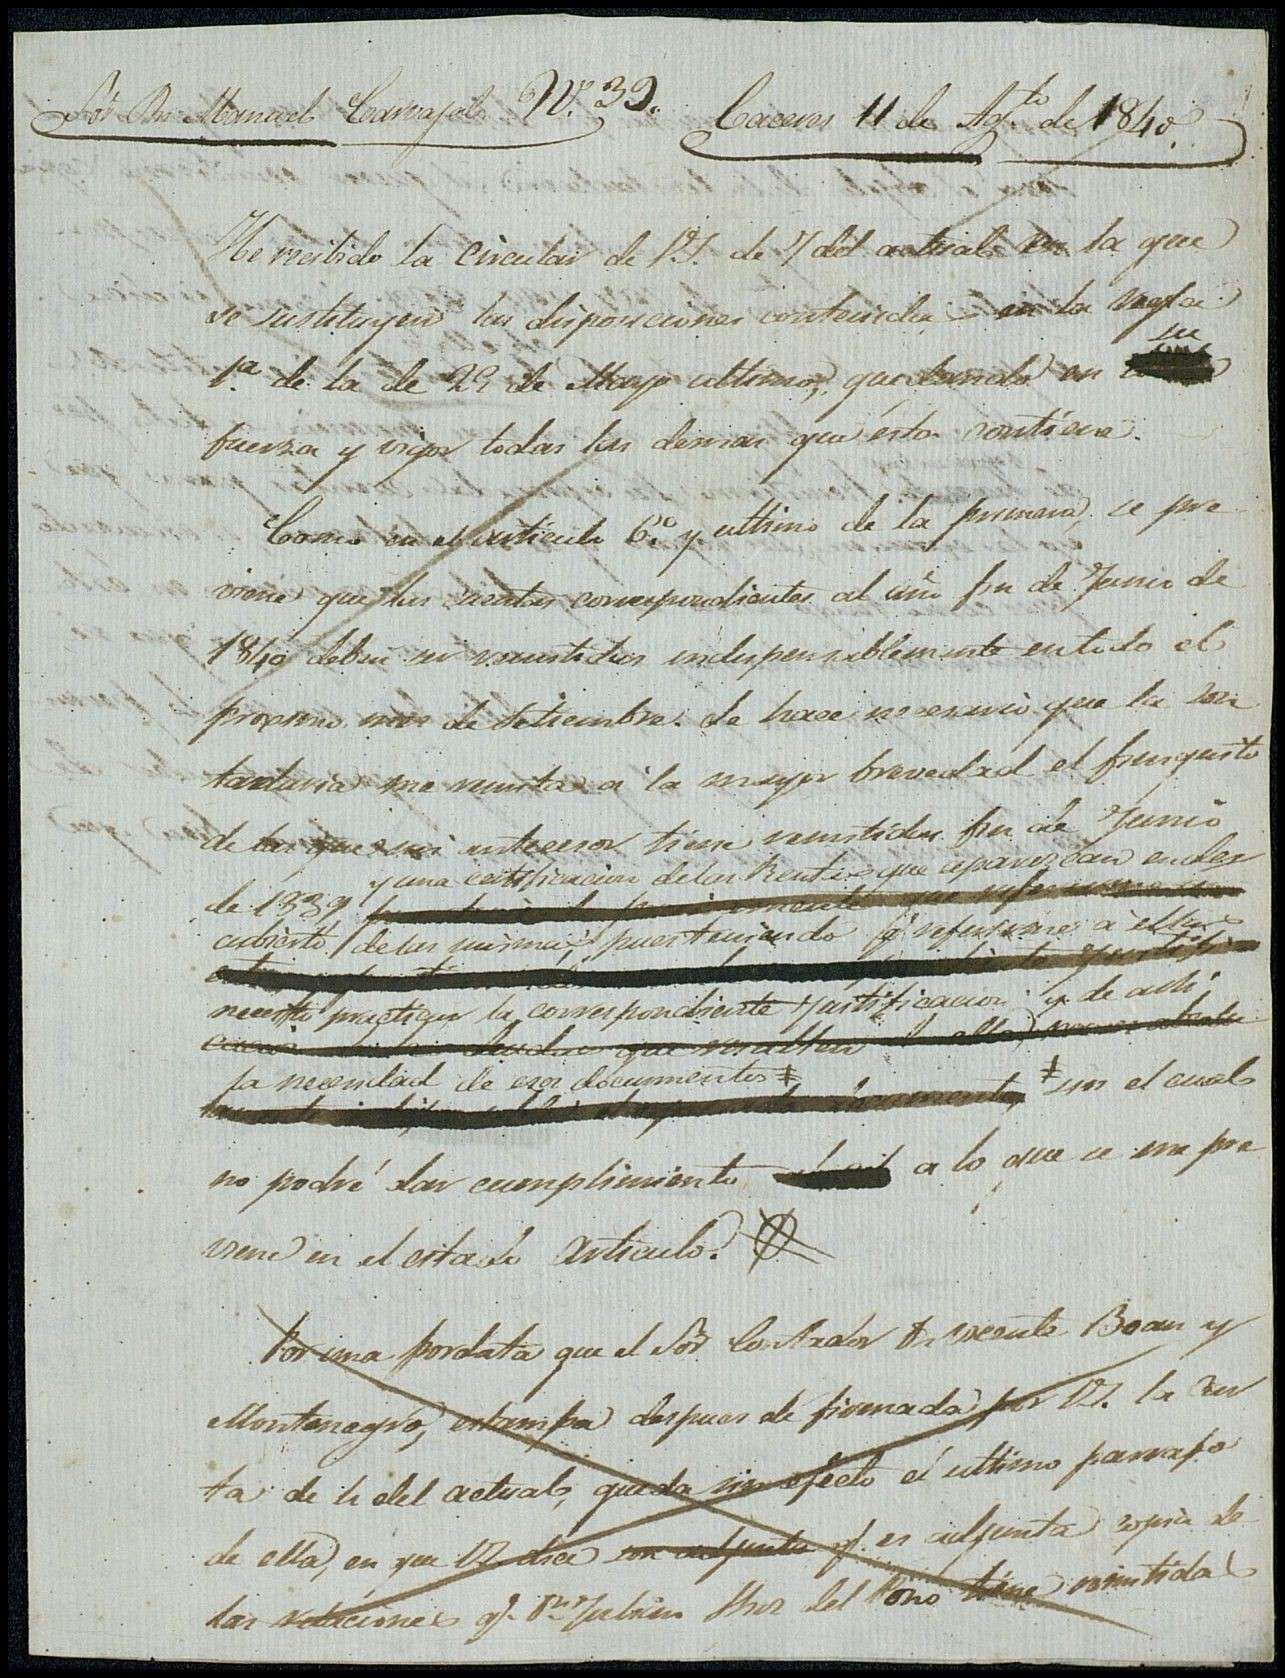 Sor Dn Manuel Carvajal Nº. 39. Caceres 11 de Agto de 1840.
He recibido la circular de V.S. de 7 del actual en la que
se sustituyen las disposiciones contenidas en la regla
1.ª de la de 29 de Mayo ultimo, quedando en su
fuerza y vigor todas las demas que ésta contiene.
Como en el articulo 6.º y ultimo de la primera, se pre
viene que las cuentas correspondientes al año fin de Junio de
1840 deben ser remitidas indispensablemente en todo el
proximo mes de Setiembre. Se hace necesario que la Con
taduria me remita a la mayor brevedad el finiquito
de las que mi antecesor tiene remitidas fin de Junio
y una certificacion de las Rentas que aparezcan en des
de 1839
cubierto de las mismas, pues teniendo q. referirme á ellas
necesito practicar la correspondiente justificacion y de alli
la necesidad de esos documentos ‡
‡ sin el cual
no podré dar cumplimiento a lo que se me pre
viene en el citado Articulo.
Por una pordata que el Sor Contador Dn Vicente Bean y
Montenegro, estampa despues de firmada por V.S. la Cuen
ta de 4 del actual, queda sin efecto el ultimo parrafo
de ella, en que V.S. dice con adjunta q. es adjunta copia de
las relaciones q. Dn Julian Hor del Pono tiene remitidas